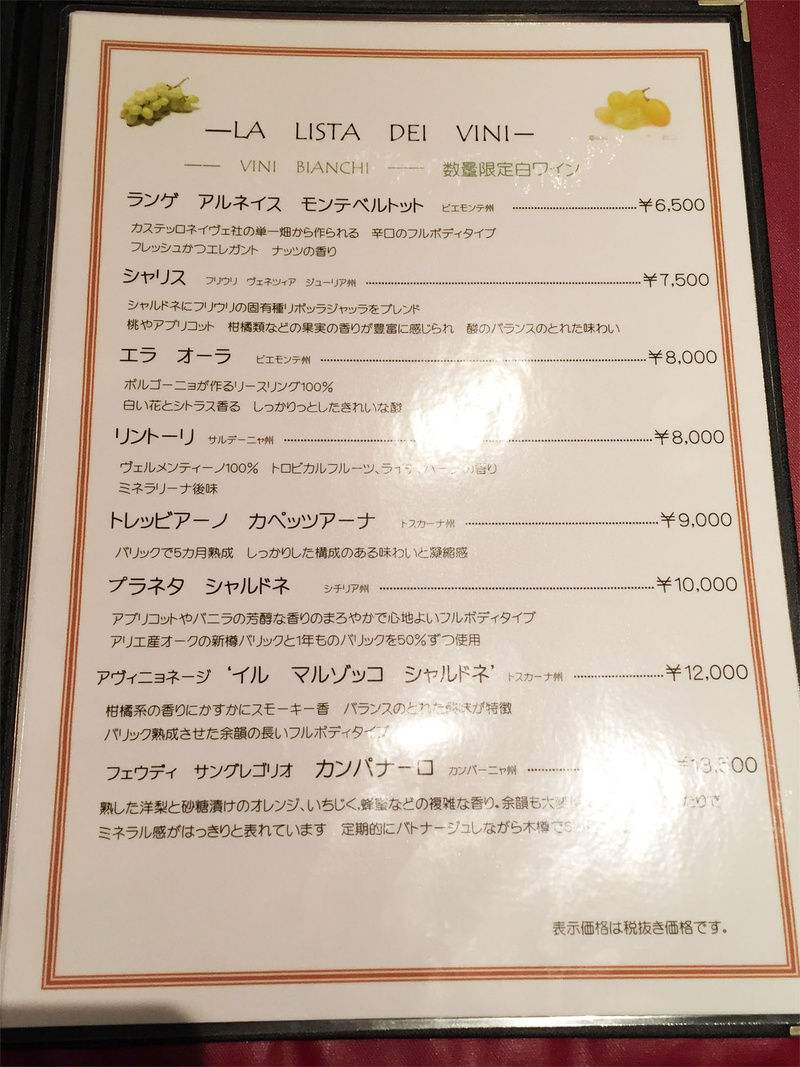 —LA LISTA DEI VINI—
—— VINI BIANCHI —— 数量限定白ワイン
ランゲ アルネイス モンテベルトット ピエモンテ州 ¥6,500
カステッロネイヴェ社の単一畑から作られる 辛口のフルボディタイプ
フレッシュかつエレガント ナッツの香り
シャリス フリウリ ヴェネツィア ジューリア州 ¥7,500
シャルドネにフリウリの固有種リボッラジャッラをブレンド
桃やアプリコット 柑橘類などの果実の香りが豊富に感じられ 酸のバランスのとれた味わい
エラ オーラ ピエモンテ州 ¥8,000
ボルゴーニョが作るリースリング100%
白い花とシトラス香る しっかりっとしたきれいな酸
リントーリ サルデーニャ州 ¥8,000
ヴェルメンティーノ100% トロピカルフルーツ、の香り
ミネラリーナ後味
トレッビアーノ カペッツアーナ トスカーナ州 ¥9,000
バリックで5カ月熟成 しっかりした構成のある味わいと凝縮感
プラネタ シャルドネ シチリア州 ¥10,000
アプリコットやバニラの芳醇な香りのまろやかで心地よいフルボディタイプ
アリエ産オークの新樽バリックと1年ものバリックを50%ずつ使用
アヴィニョネージ ‘イル マルゾッコ シャルドネ’ トスカーナ州 ¥12,000
柑橘系の香りにかすかにスモーキー香 バランスのとれたが特徴
バリック熟成させた余韻の長いフルボディタイプ
フェウディ サングレゴリオ カンパナーロ カンパーニャ州 ¥13,500
熟した洋梨と砂糖漬けのオレンジ、いちじく,蜂蜜などの複雑な香り.余韻も
ミネラル感がはっきりと表れています 定期的にバトナージュしながら木樽で
表示価格は税抜き価格です。